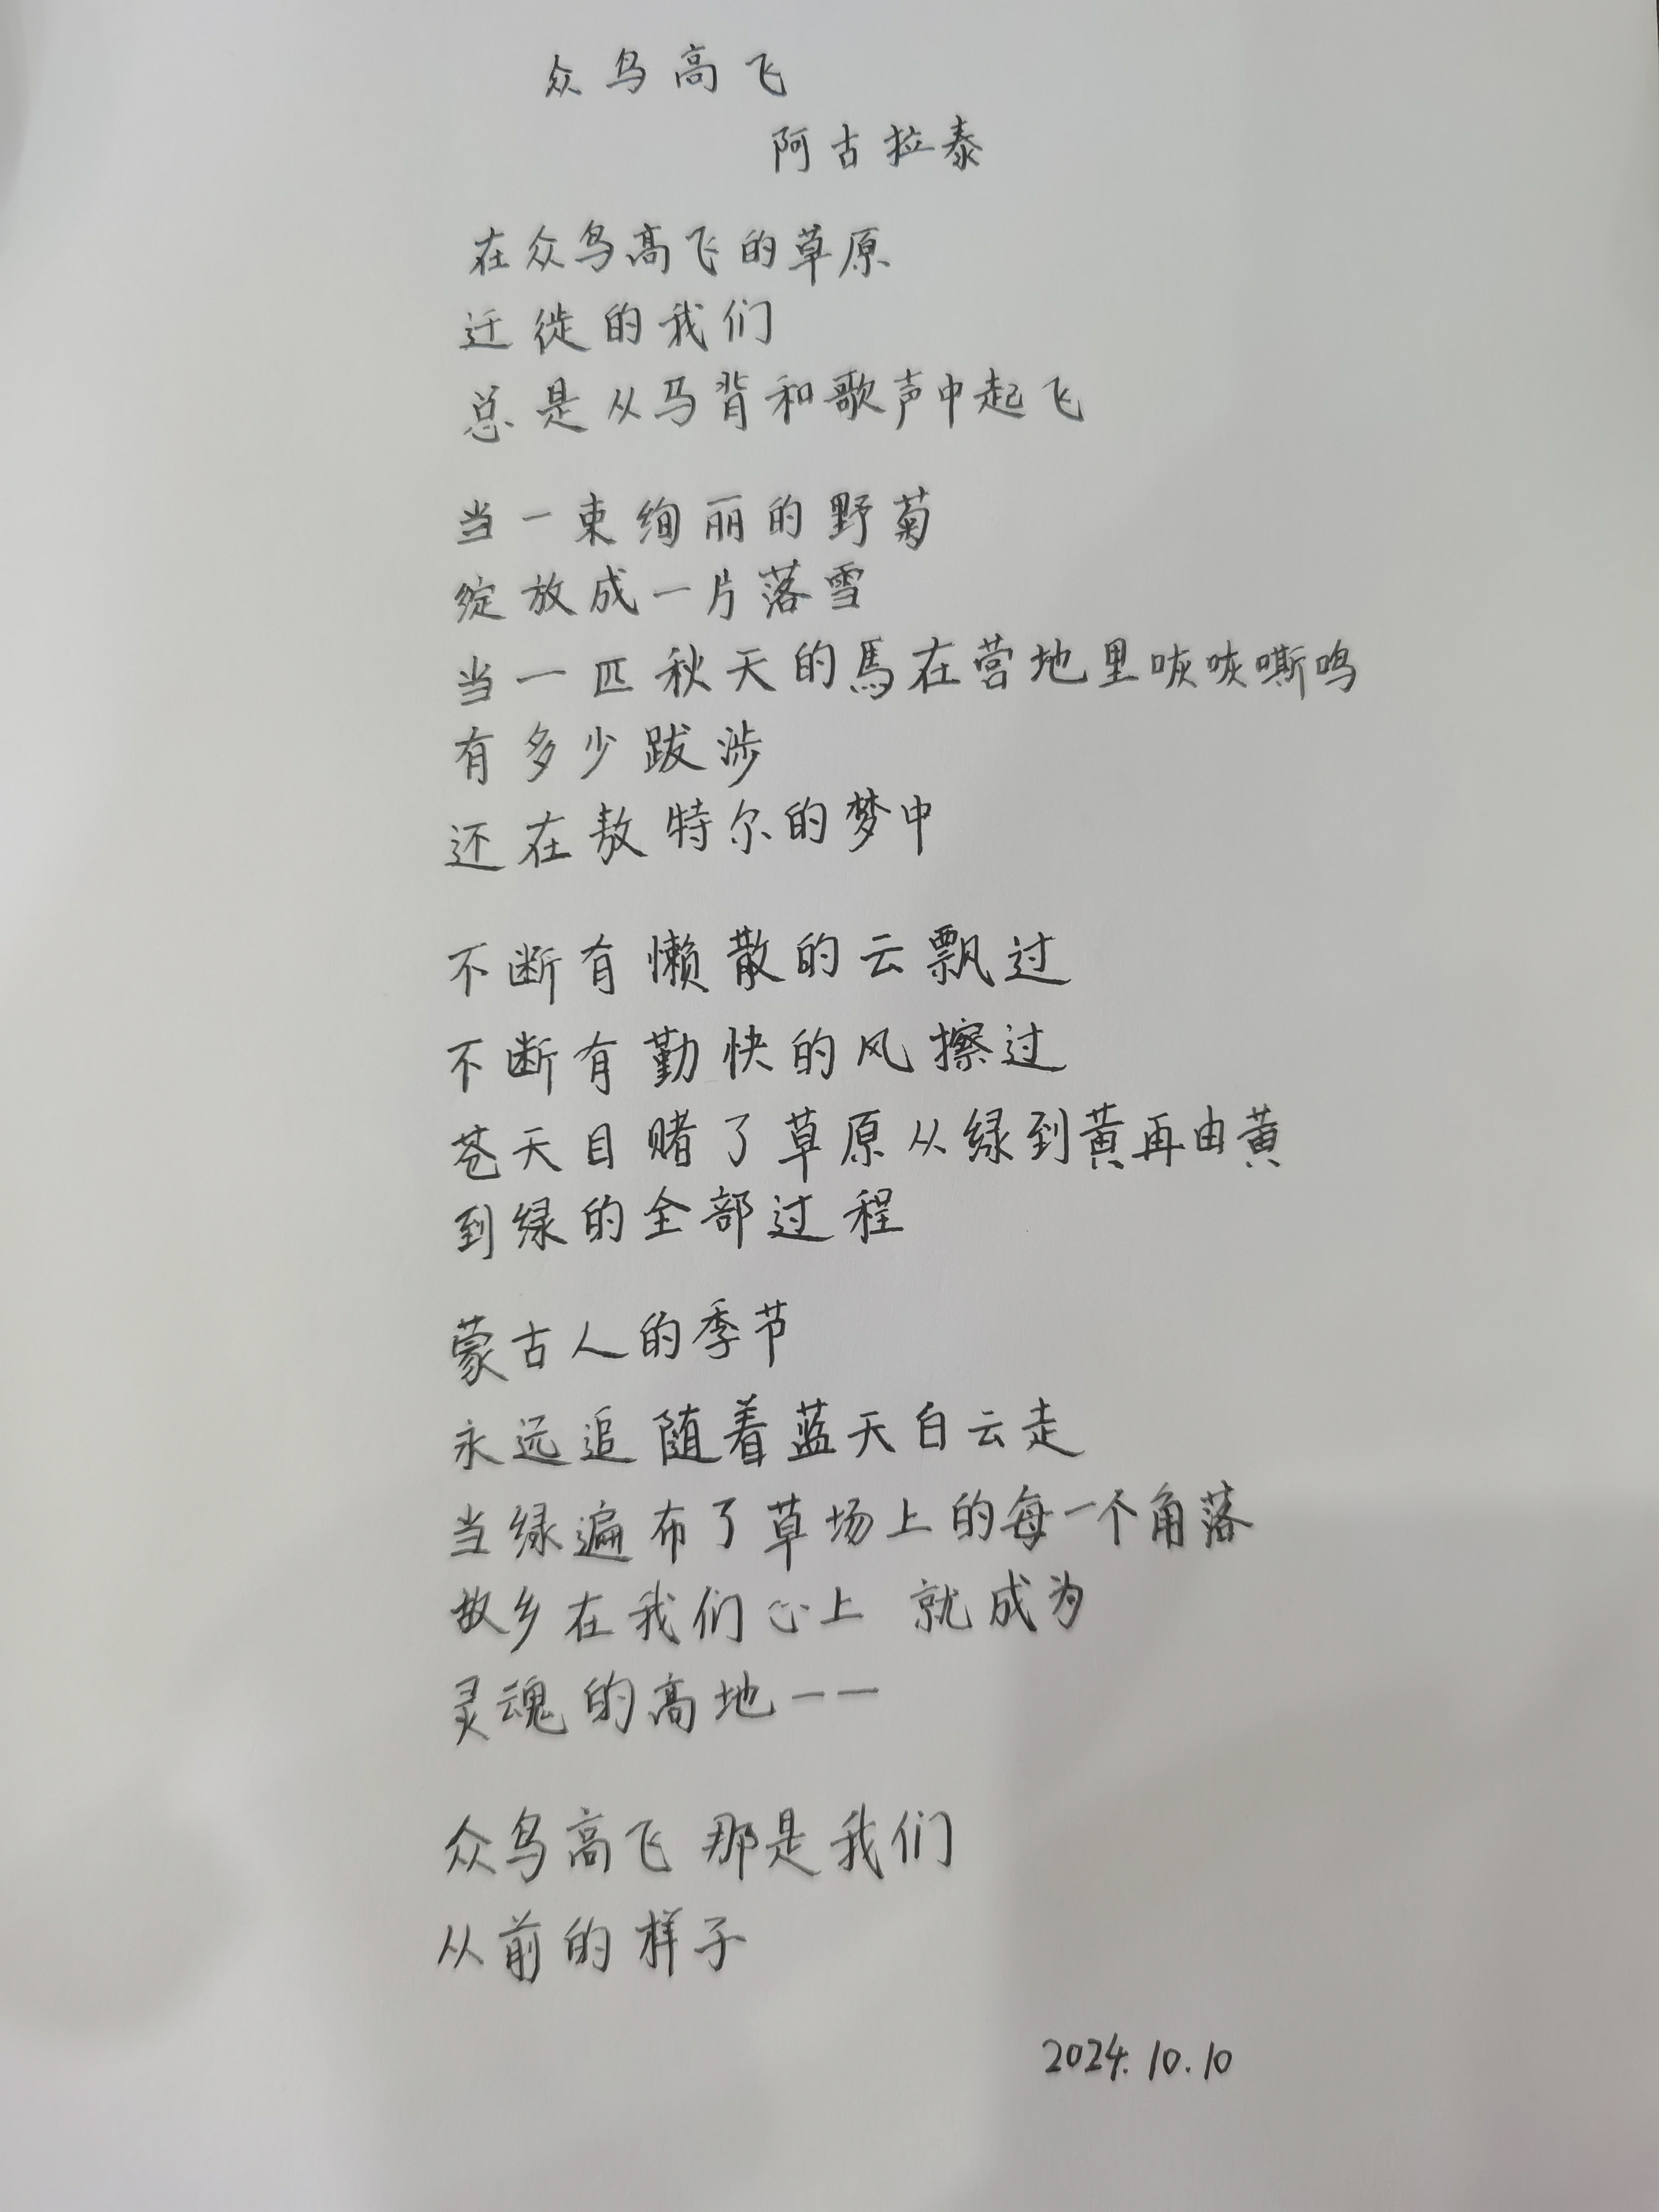 众鸟高飞
阿古拉泰
在众鸟高飞的草原
迁徙的我们
总是从马背和歌声中起飞
当一束绚丽的野菊
绽放成一片落雪
当一匹秋天的馬在营地里咴咴嘶鸣
有多少跋涉
还在敖特尔的梦中
不断有懒散的云飘过
不断有勤快的风擦过
苍天目赌了草原从绿到黄再由黄
到绿的全部过程
蒙古人的季节
永远追随着蓝天白云走
当绿遍布了草场上的每一个角落
故乡在我们心上 就成为
灵魂的高地——
众鸟高飞 那是我们
从前的样子
2024.10.10